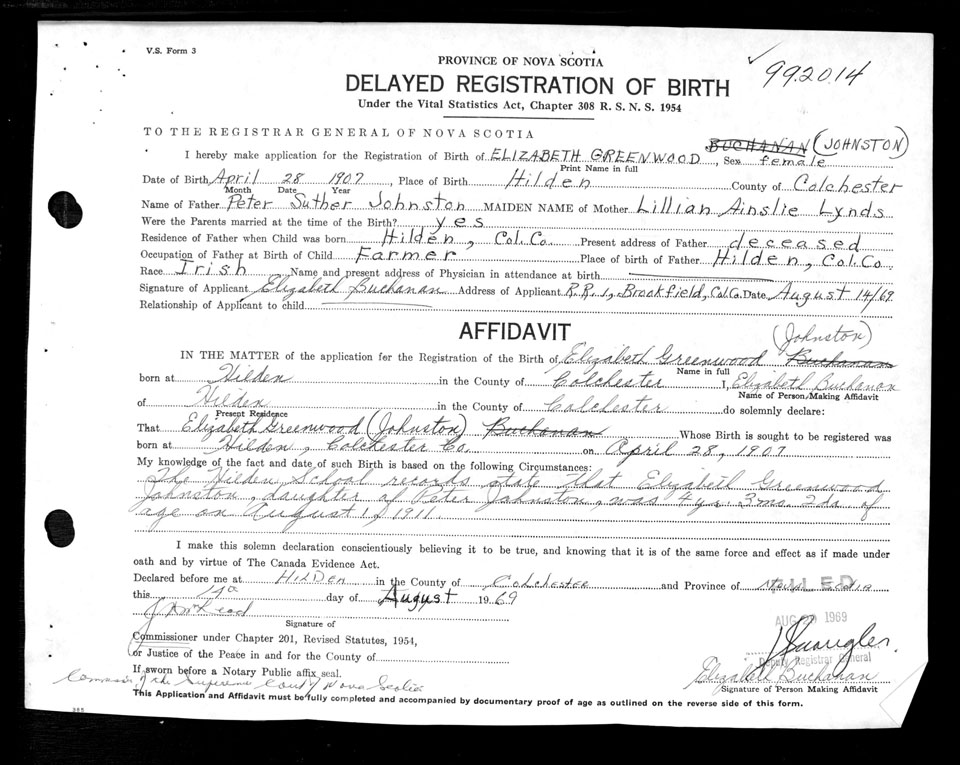 V.S. Form 3
PROVINCE OF NOVA SCOTIA
992014
DELAYED REGISTRATION OF BIRTH
Under the Vital Statistics Act, Chapter 308 R. S. N. S. 1954
TO THE REGISTRAR GENERAL OF NOVA SCOTIA
I hereby make application for the Registration of Birth of ELIZABETH GREENWOOD BUCHANAN (JOHNSTON), Sex female
Print Name in full
Date of Birth April 28 1907, Place of Birth Hilden County of Colchester
Month Date Year
Name of Father Peter Suther Johnston MAIDEN NAME of Mother Lillian Ainslie Lynds
Were the Parents married at the time of the Birth? yes
Residence of Father when Child was born Hilden, Col. Co. Present address of Father deceased
Occupation of Father at Birth of Child Farmer Place of birth of Father Hilden, Col. Co.
Race Irish Name and present address of Physician in attendance at birth
Signature of Applicant Elizabeth Buchanan Address of Applicant R.R. 1, Brookfield, Col. Co. Date August 14/69
Relationship of Applicant to child
AFFIDAVIT
(Johnston)
IN THE MATTER of the application for the Registration of Birth of Elizabeth Greenwood Buchanan
Name in full
born at Hilden in the County of Colchester I, Elizabeth Buchanan
Name of Person Making Affidavit
of Hilden in the County of Colchester do solemnly declare:
Present Residence
That Elizabeth Greenwood (Johnston) Buchanan Whose Birth is sought to be registered was
born at Hilden, Colchester Co. on April 28, 1907
My knowledge of the fact and date of such Birth is based on the following Circumstances:
The Hilden School records state that Elizabeth Greenwood
Johnston, daughter of Peter Johnston, was 4 yr. 3 mo. 2 da. of
age on August 1, 1911.
I make this solemn declaration conscientiously believing it to be true, and knowing that it is of the same force and effect as if made under
oath and by virtue of The Canada Evidence Act.
Declared before me at Hilden in the County of Colchester and Province of Nova Scotia
FILED
this day of August 1969
AUG 1969
Signature of
Commissioner under Chapter 201, Revised Statutes, 1954,
or Justice of the Peace in and for the County of
Deputy Registrar General
If sworn before a Notary Public affix seal.
Elizabeth Buchanan
of the Supreme Court Nova Scotia
Signature of Person Making Affidavit
This Application and Affidavit must be fully completed and accompanied by documentary proof of age as outlined on the reverse side of this form.